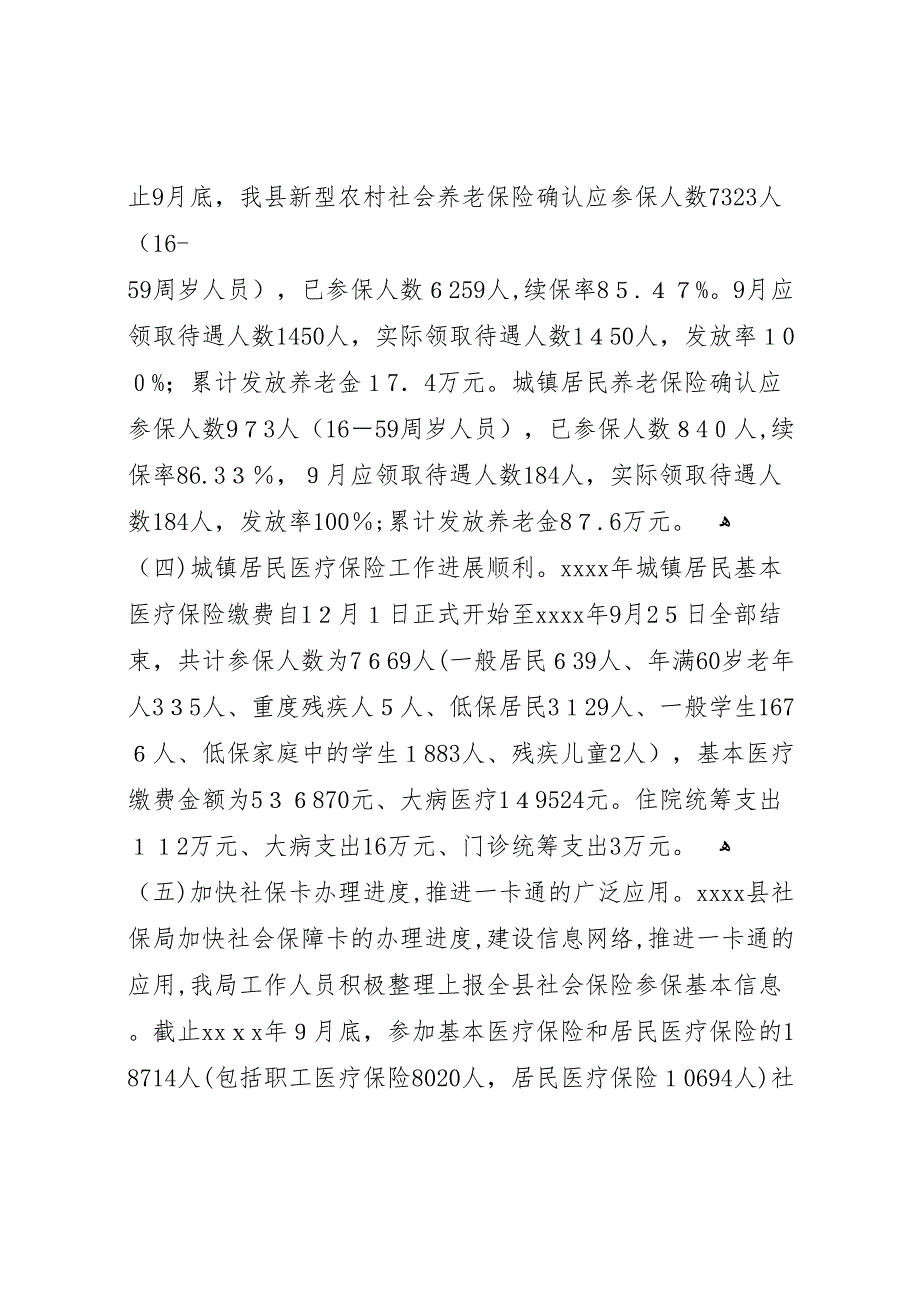 止9月底，我县新型农村社会养老保险确认应参保人数7323人
（16-
59周岁人员），已参保人数６259人,续保率8５.４７%。9月应
领取待遇人数1450人，实际领取待遇人数1４50人，发放率１0
０%；累计发放养老金１7．4万元。城镇居民养老保险确认应
参保人数9７3人（16－59周岁人员），已参保人数８4０人,续
保率86.3３％，９月应领取待遇人数184人，实际领取待遇人
数184人，发放率100％;累计发放养老金8７.6万元。 ﻫ
（四)城镇居民医疗保险工作进展顺利。xxxx年城镇居民基本
医疗保险缴费自1２月１日正式开始至xxxx年9月2５日全部结
束，共计参保人数为7６69人(一般居民６39人、年满60岁老年
人3３5人、重度残疾人５人、低保居民3１29人、一般学生167
６人、低保家庭中的学生１883人、残疾儿童2人），基本医疗
缴费金额为5３６870元、大病医疗1４9524元。住院统筹支出
１１2万元、大病支出16万元、门诊统筹支出3万元。 ﻫ
（五)加快社保卡办理进度,推进一卡通的广泛应用。xxxx县社
保局加快社会保障卡的办理进度,建设信息网络,推进一卡通的
应用,我局工作人员积极整理上报全县社会保险参保基本信息
。截止xxｘx年９月底，参加基本医疗保险和居民医疗保险的1
8714人(包括职工医疗保险8020人，居民医疗保险１0694人)社